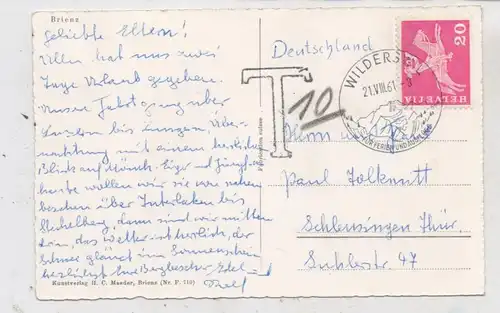 Brienz
Geliebte Eltern!
Ellen hat uns zwei
Tage Urlaub gegeben.
Unsere Fahrt ging über
Luzern bis Lungern, Über-
nachtung mit einem herrlichen
Blick auf Mönch-Eiger und Jungfrau
heute wollen wir sie von nahem
besehen über Interlaken bis
Stechelberg, dann sind wir mitten
drin, das Wetter ist herrlich, der
Schnee glänzt im Sonnenschein
herzlichst Eure
Kunstverlag H. C. Maeder, Brienz (Nr. P. 710)
Deutschland
T
10
WILDERSWIL
21.VIII.61
HELVETIA
20
Paul
Schleusingen Thür.
Suhlerstr. 47